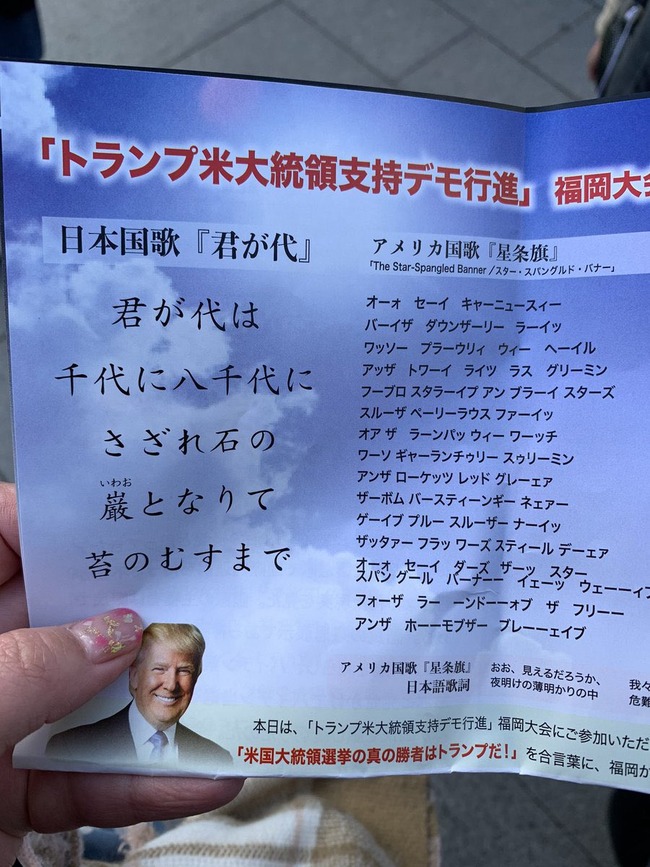 「トランプ米大統領支持デモ行進」 福岡大会
日本国歌『君が代』
君が代は
千代に八千代に
さざれ石の
いわお
巌となりて
苔のむすまで
アメリカ国歌『星条旗』
「The Star-Spangled Banner /スター・スパングルド・バナー」
オーォ セーイ キャーニュースィー
バーイザ ダウンザーリー ラーイッ
ワッソー プラーウリィ ウィー ヘーイル
アッザ トワーイ ライツ ラス グリーミン
フーブロ スタラーイプ アン ブラーイ スターズ
スルーザ ペーリーラウス ファーイッ
オア ザ ラーンパッ ウィー ワーッチ
ワーソ ギャーランチゥリー スゥリーミン
アンザ ローケッツ レッド グレーェア
ザーボム バースティーンギー ネェアー
ゲーイブ プルー スルーザー ナーイッ
ザッタァー フラッ ワーズ スティール デーェア
オーォ セーイ ダーズ ザーッ スター
スパン グール バーナーー イェーツ ウェーーィブ
フォーザ ラー ーンドーーオブ ザ フリーー
アンザ ホーーモブザー ブレーーェイブ
アメリカ国歌『星条旗』
日本語歌詞
おお、見えるだろうか、
夜明けの薄明かりの中
我々
危難
本日は、「トランプ米大統領支持デモ行進」福岡大会にご参加いただ
「米国大統領選挙の真の勝者はトランプだ！」を合言葉に、福岡か